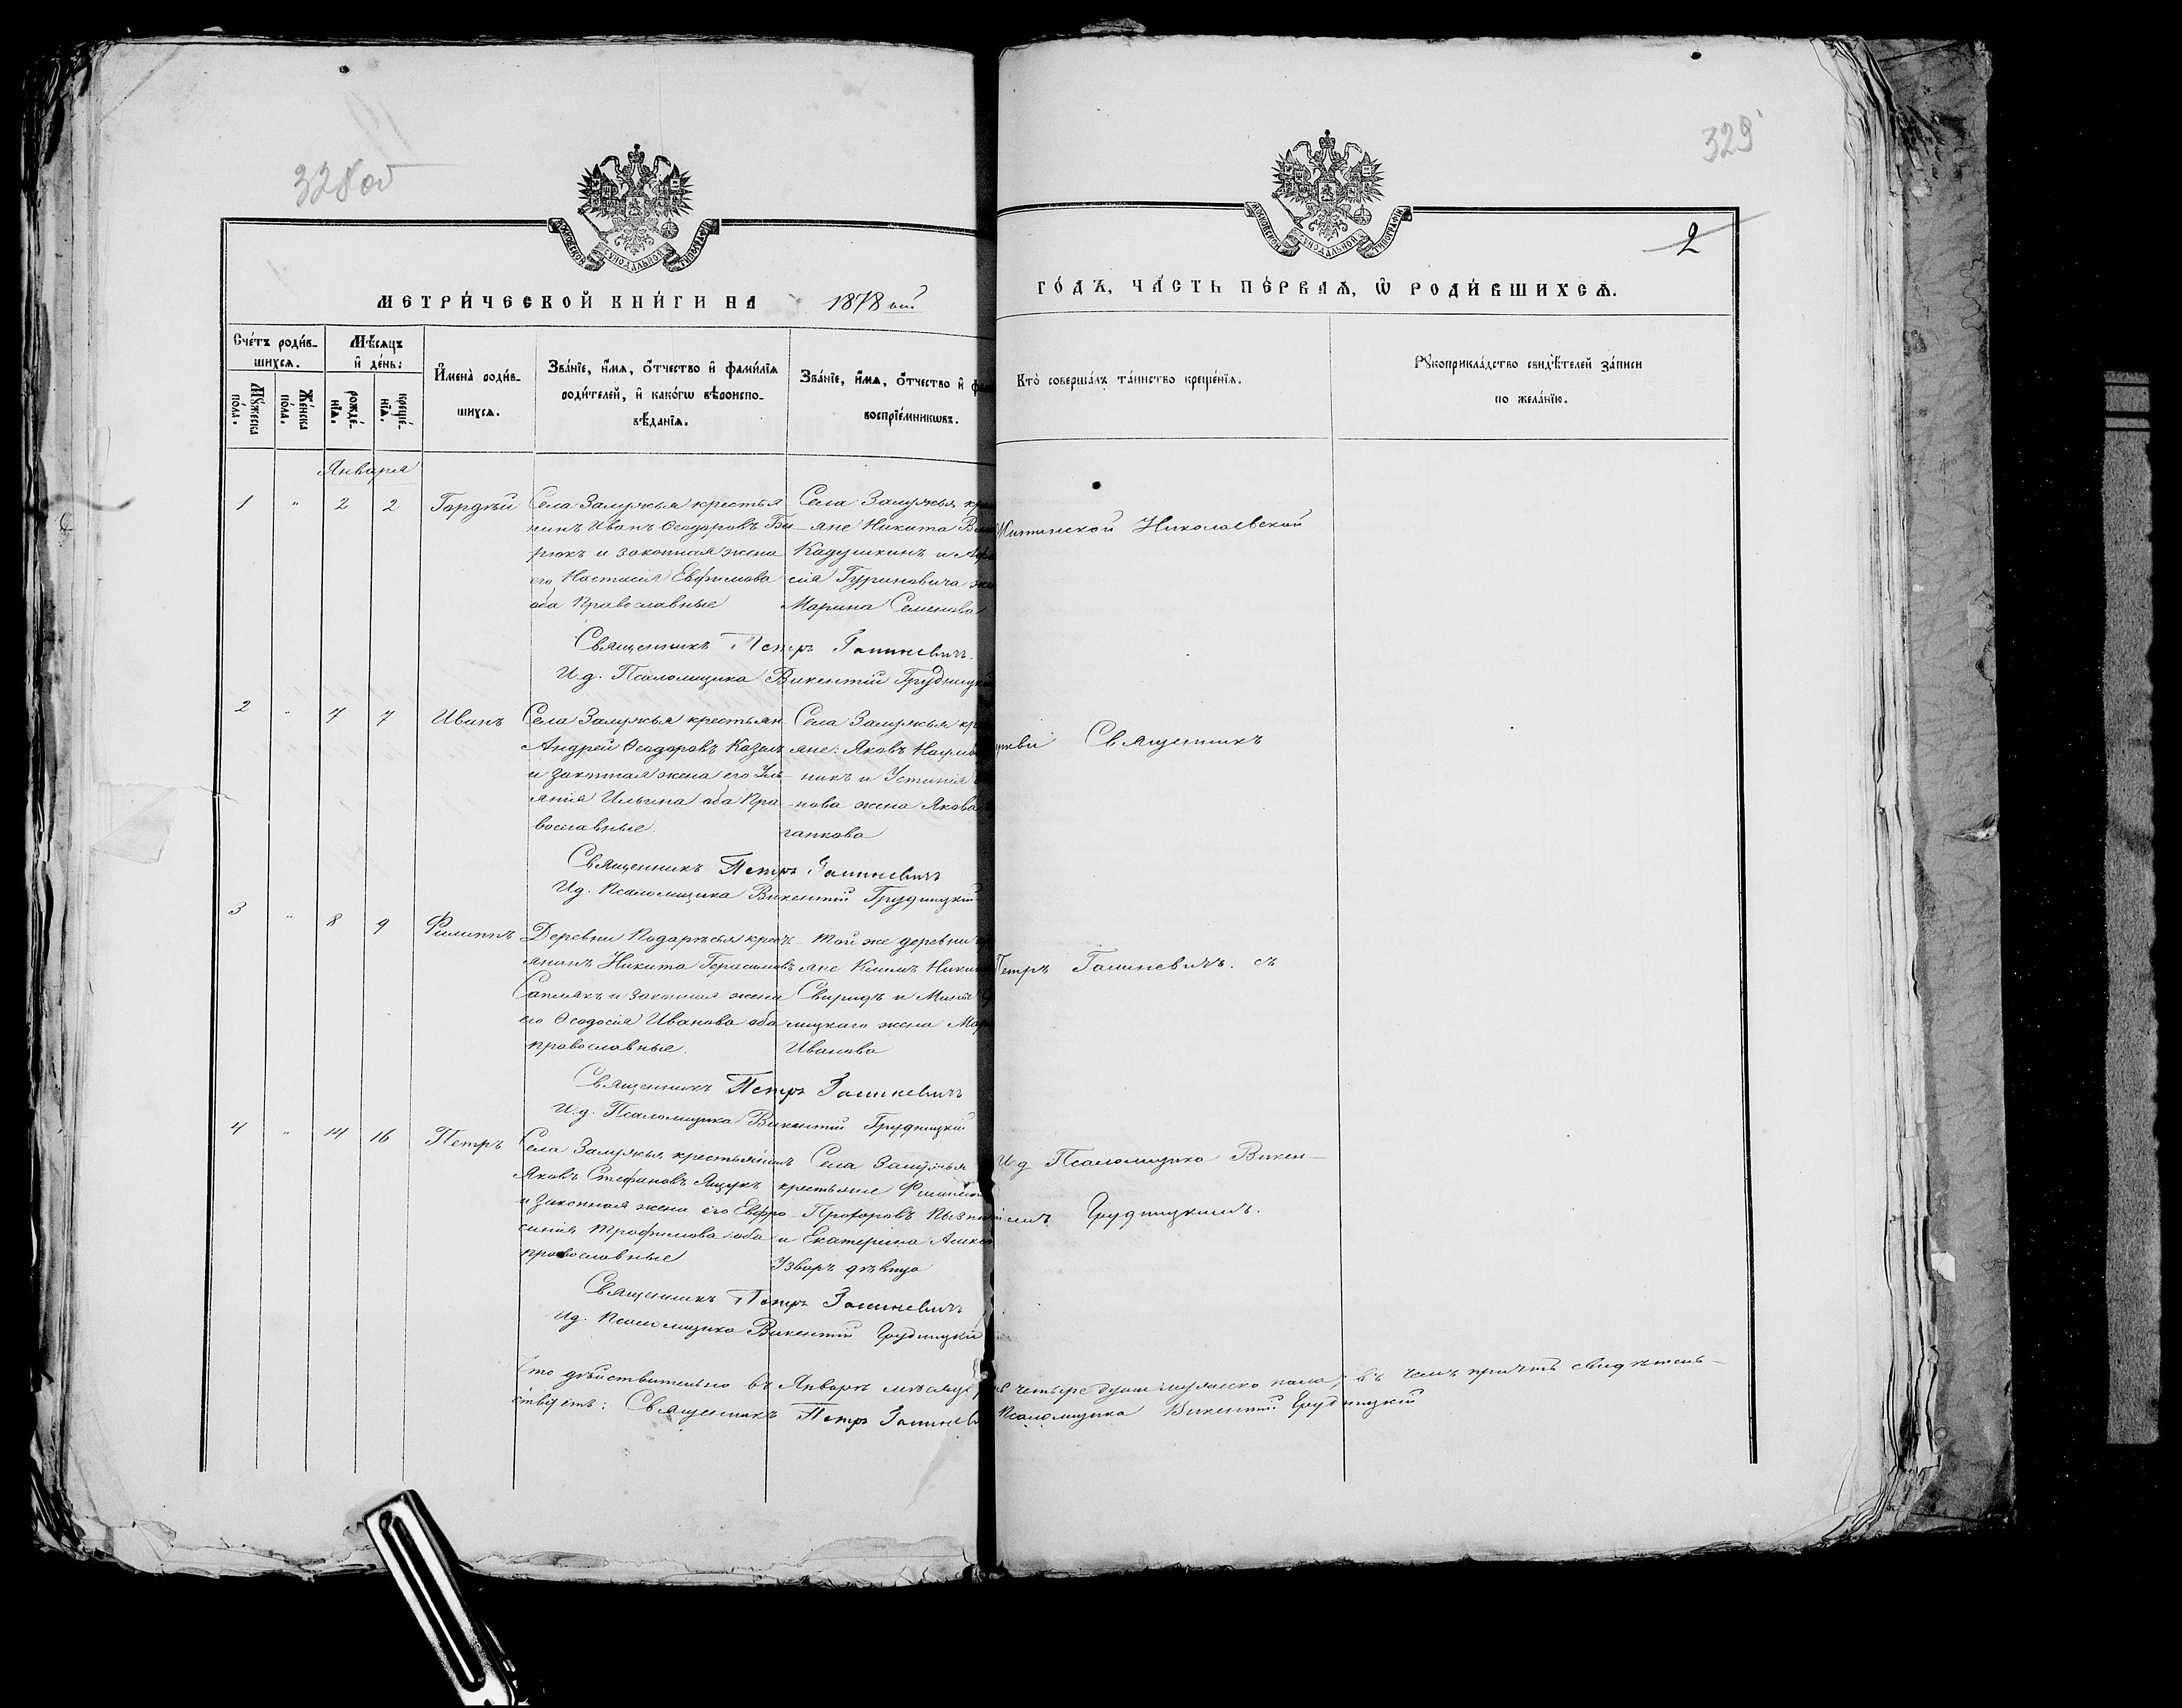 328 об
329
2
МОСКОВСКОЙ СѴНОДАЛЬНОЙ ТИПОГРАФІИ
МОСКОВСКОЙ СѴНОДАЛЬНОЙ ТИПОГРАФІИ
МЕТРИ́ЧЕСКОЙ КНИ́ГИ НА 1878 ой
ГО́ДЪ, ЧА́СТЬ ПЕ́РВАѦ, Ѡ РОДИ́ВШИХСѦ.
Сче́тъ роди́в-
шихсѧ.
Мꙋ́жеска
по́ла.
Же́нска
по́ла.
Мѣ́сѧцъ
и҆ де́нь:
рожде́-
нїѧ.
креще́-
нїѧ.
И҆мена̀ роди́в-
шихсѧ.
Зва́нїе, и҆́мѧ, ѻ҆́тчество и҆ фами́лїѧ
роди́телей, и҆ како́гѡ вѣроиспо-
вѣ́данїѧ.
Зва́нїе, и҆́мѧ, ѻ҆́тчество и҆
воспрїе́мникѡвъ.
Кто̀ соверша́лъ та́инство креще́нїѧ.
Рꙋкоприкла́дство свидѣ́телей за́писи
по жела́нїю.
Января
1 " 2 2 Гордѣй
Села Залужья крестья
нинъ Иванъ Ѳеодоровъ Би-
рюкъ и законная жена
его Настасія Евфимова
оба Православные
Села Залужья
яне Никита
Кадушкинъ и
сія Гуриновича
Марина Семенова
Священникъ Петръ Галиневичъ.
И.д. Псаломщика Викентій Грудницкій
2 " 7 7 Иванъ
Села Залужья крестьян.
Андрей Ѳеодоровъ Козелъ
и законная жена его Уль-
янія Ильина оба Пра-
вославные
Села Залужья
яне: Яковъ
никъ и Устинія
нова жена Якова
ганкова
Священникъ Петръ Галиневичъ
И.д. Псаломщика Викентій Грудницкій
3 " 8 9 Филиппъ
Деревни Подарѣсья крест-
янинъ Никита Герасимовъ
Саплякъ и законная жена
его Ѳеодосія Иванова оба
православные.
Той же деревни
яне Климъ
Свиридъ и Мины
лицкаго жена
Иванова
Священникъ Петръ Галиневичъ
И.д. Псаломщика Викентій Грудницкій
4 " 14 16 Петръ
Села Залужья крестьянинъ
Яковъ Стефановъ Ящукъ
и законная жена его Евфро-
синія Трофимова оба
православные
Села Залужья
крестьяне
Прохоровъ
и Екатерина
Узваръ дѣвица
Священникъ Петръ Галиневичъ
И.д. Псаломщика Викентій Грудницкій
Николаевской
Священникъ
Петръ Галиневичъ. съ
И.д Псаломщика Викен-
Грудницкимъ.
Что дѣйствительно въ Январѣ мѣсяцѣ четыре души мужеско пола, въ чемъ причтъ свидѣтель-
ствуетъ: Священникъ Петръ Галиневи Псаломщика Викентій Грудницкій